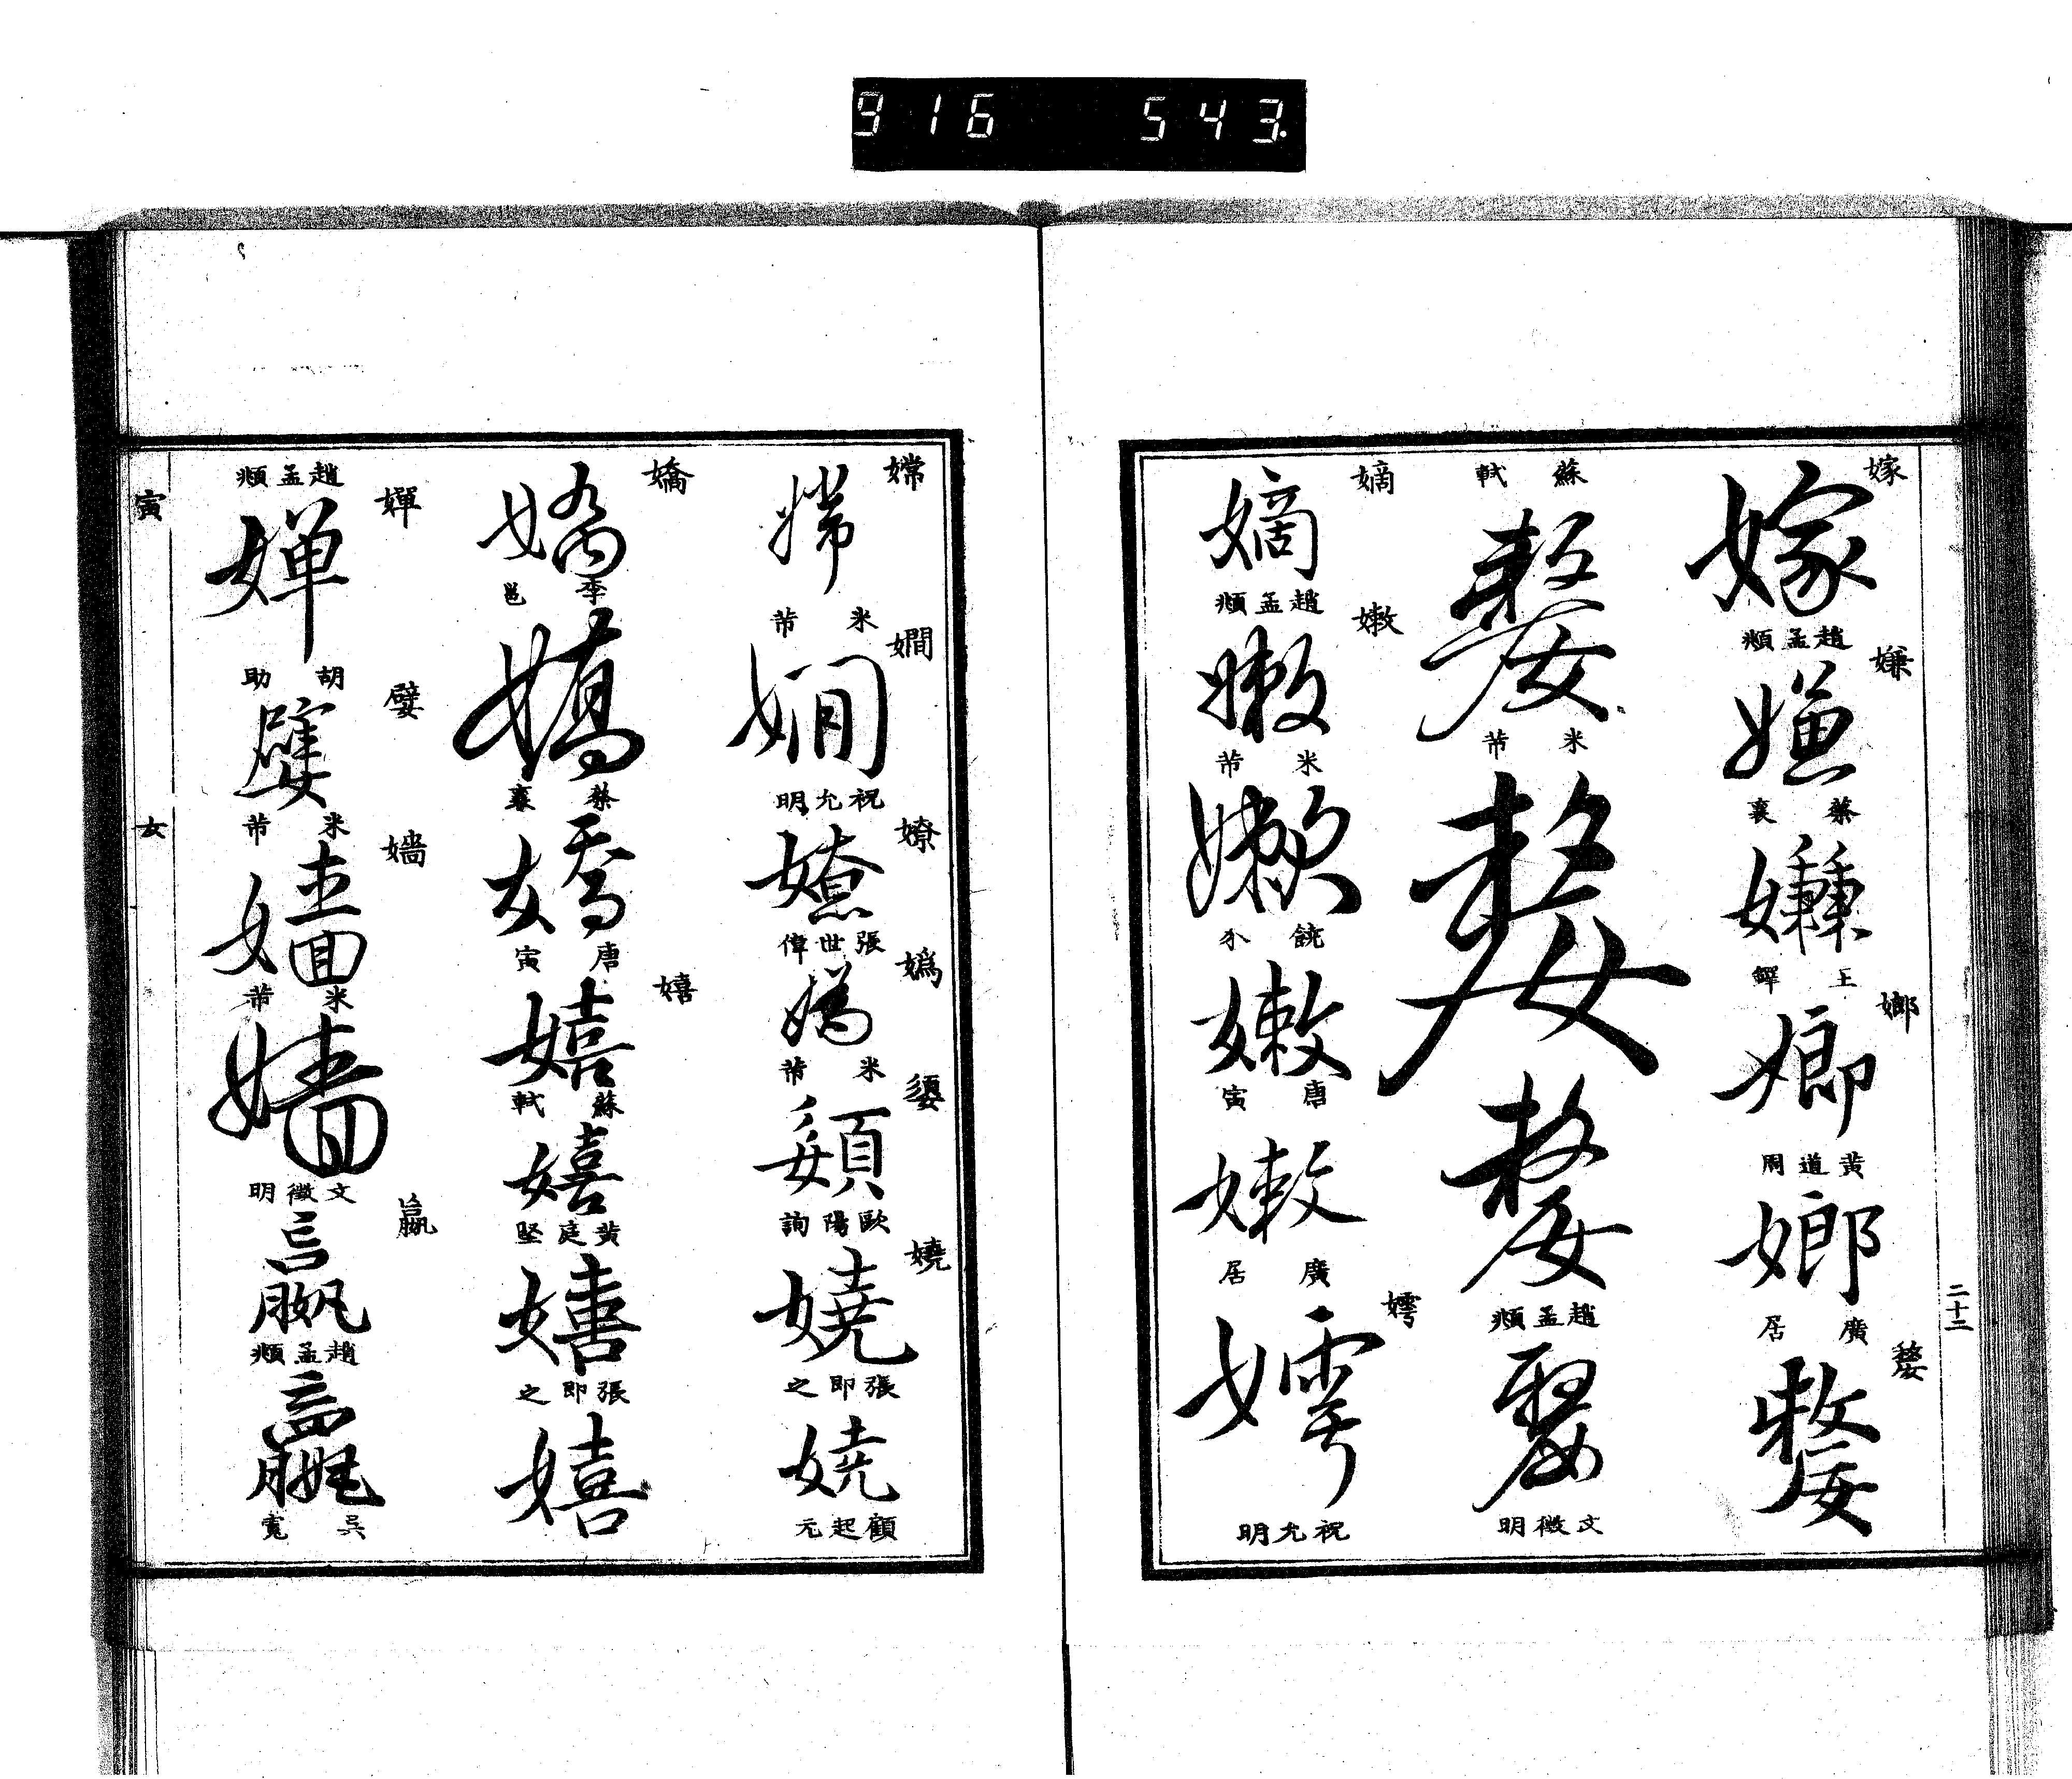 916 543.
二十二
嫁 嫌 嫏 嫠
嫁 趙孟頫 嫌 蔡襄 嫌 王鐸 嫏 黃道周 嫏 廣居 嫠
蘇軾 嫠 米芾 嫠 嫠 趙孟頫 嫠 文徵明
嫡 嫩 嫮
嫡 趙孟頫 嫩 米芾 嫩 饒介 嫩 唐寅 嫩 廣居 嫮 祝允明
嫦 嫺 嫽 嬀 嬃 嬈
嫦 米芾 嫺 祝允明 嫽 張世偉 嬀 米芾 嬃 歐陽詢 嬈 張即之 嬈 顧起元
嬌 嬉
嬌 李邕 嬌 蔡襄 嬌 唐寅 嬉 蘇軾 嬉 黃庭堅 嬉 張即之 嬉
嬋 嬖 嬙 嬴
趙孟頫 嬋 胡助 嬖 米芾 嬙 米芾 嬙 文徵明 嬴 趙孟頫 嬴 吳寬
寅 女